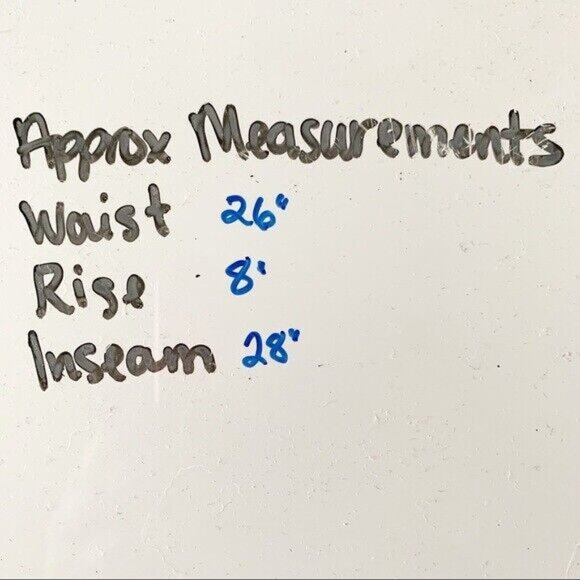 Approx Measurements
Waist 26"
Rise 8'
Inseam 28"